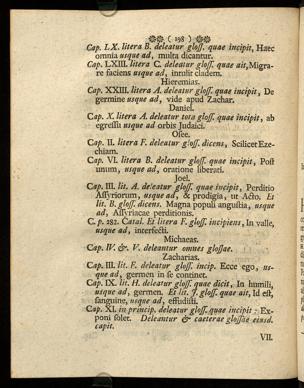 ( 198 )
Cap. LX. litera B. deleatur gloss. quae incipit, Haec
omnia usque ad, multa dicantur.
Cap. LXIII. litera C. deleatur gloss. quae ait, Migra-
re faciens usque ad, intulit cladem.
Hieremias.
Cap. XXIII. litera A. deleatur gloss. quae incipit, De
germine usque ad, vide apud Zachar.
Daniel.
Cap. X. litera A. deleatur tota gloss. quae incipit, ab
egressu usque ad orbis Judaici.
Osee.
Cap. II. litera F. deleatur gloss. dicens, Scilicet Eze-
chiam.
Cap. VI. litera B. deleatur gloss. quae incipit, Post
unum, usque ad, oratione liberati.
Joel.
Cap. III. lit. A. deleatur gloss. quae incipit, Perditio
Assyriorum, usque ad, & prodigia, ut Acto. Et
lit. B. gloss. dicens. Magna populi angustia, usque
ad, Assyriacae perditionis.
C. p. 282. Catal. Et litera F. gloss. incipiens, In valle,
usque ad, interfecti.
Michaeas.
Cap. IV. & V. deleantur omnes glossae.
Zacharias.
Cap. III. lit. F. deleatur gloss. incip. Ecce ego, us-
que ad, germen in se continet.
Cap. IX. lit. H. deleatur gloss. quae dicit, In humili,
usque ad, germen. Et lit. J. gloss. quae ait, Id est,
sanguine, usque ad, effudisti.
Cap. XI. in princip. deleatur gloss. quae incipit: Ex-
poni solet. Deleantur & caeterae glossae eiusd.
capit.
VII.